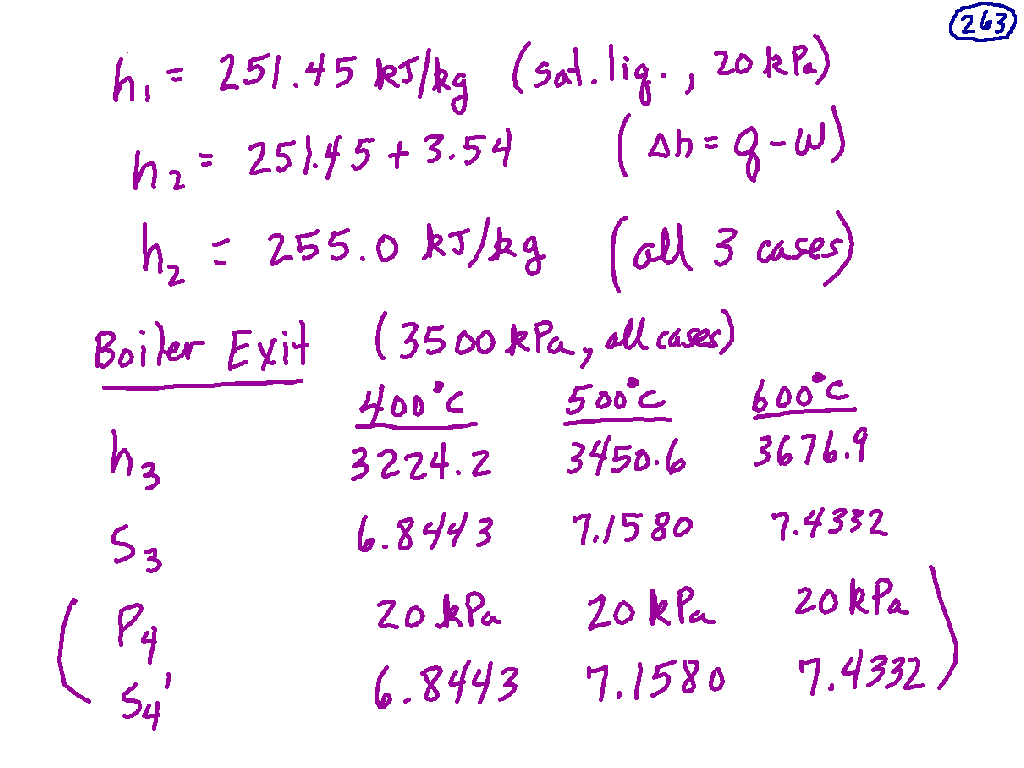 263
h₁ = 251.45 kJ/kg (sat. liq., 20 kPa)
h₂ = 251.45 + 3.54 (Δh = q - w)
h₂ = 255.0 kJ/kg (all 3 cases)
Boiler Exit (3500 kPa, all cases)
400°C 500°C 600°C
h₃ 3224.2 3450.6 3676.9
S₃ 6.8443 7.1580 7.4332
(P₄ 20 kPa 20 kPa 20 kPa
S₄' 6.8443 7.1580 7.4332)